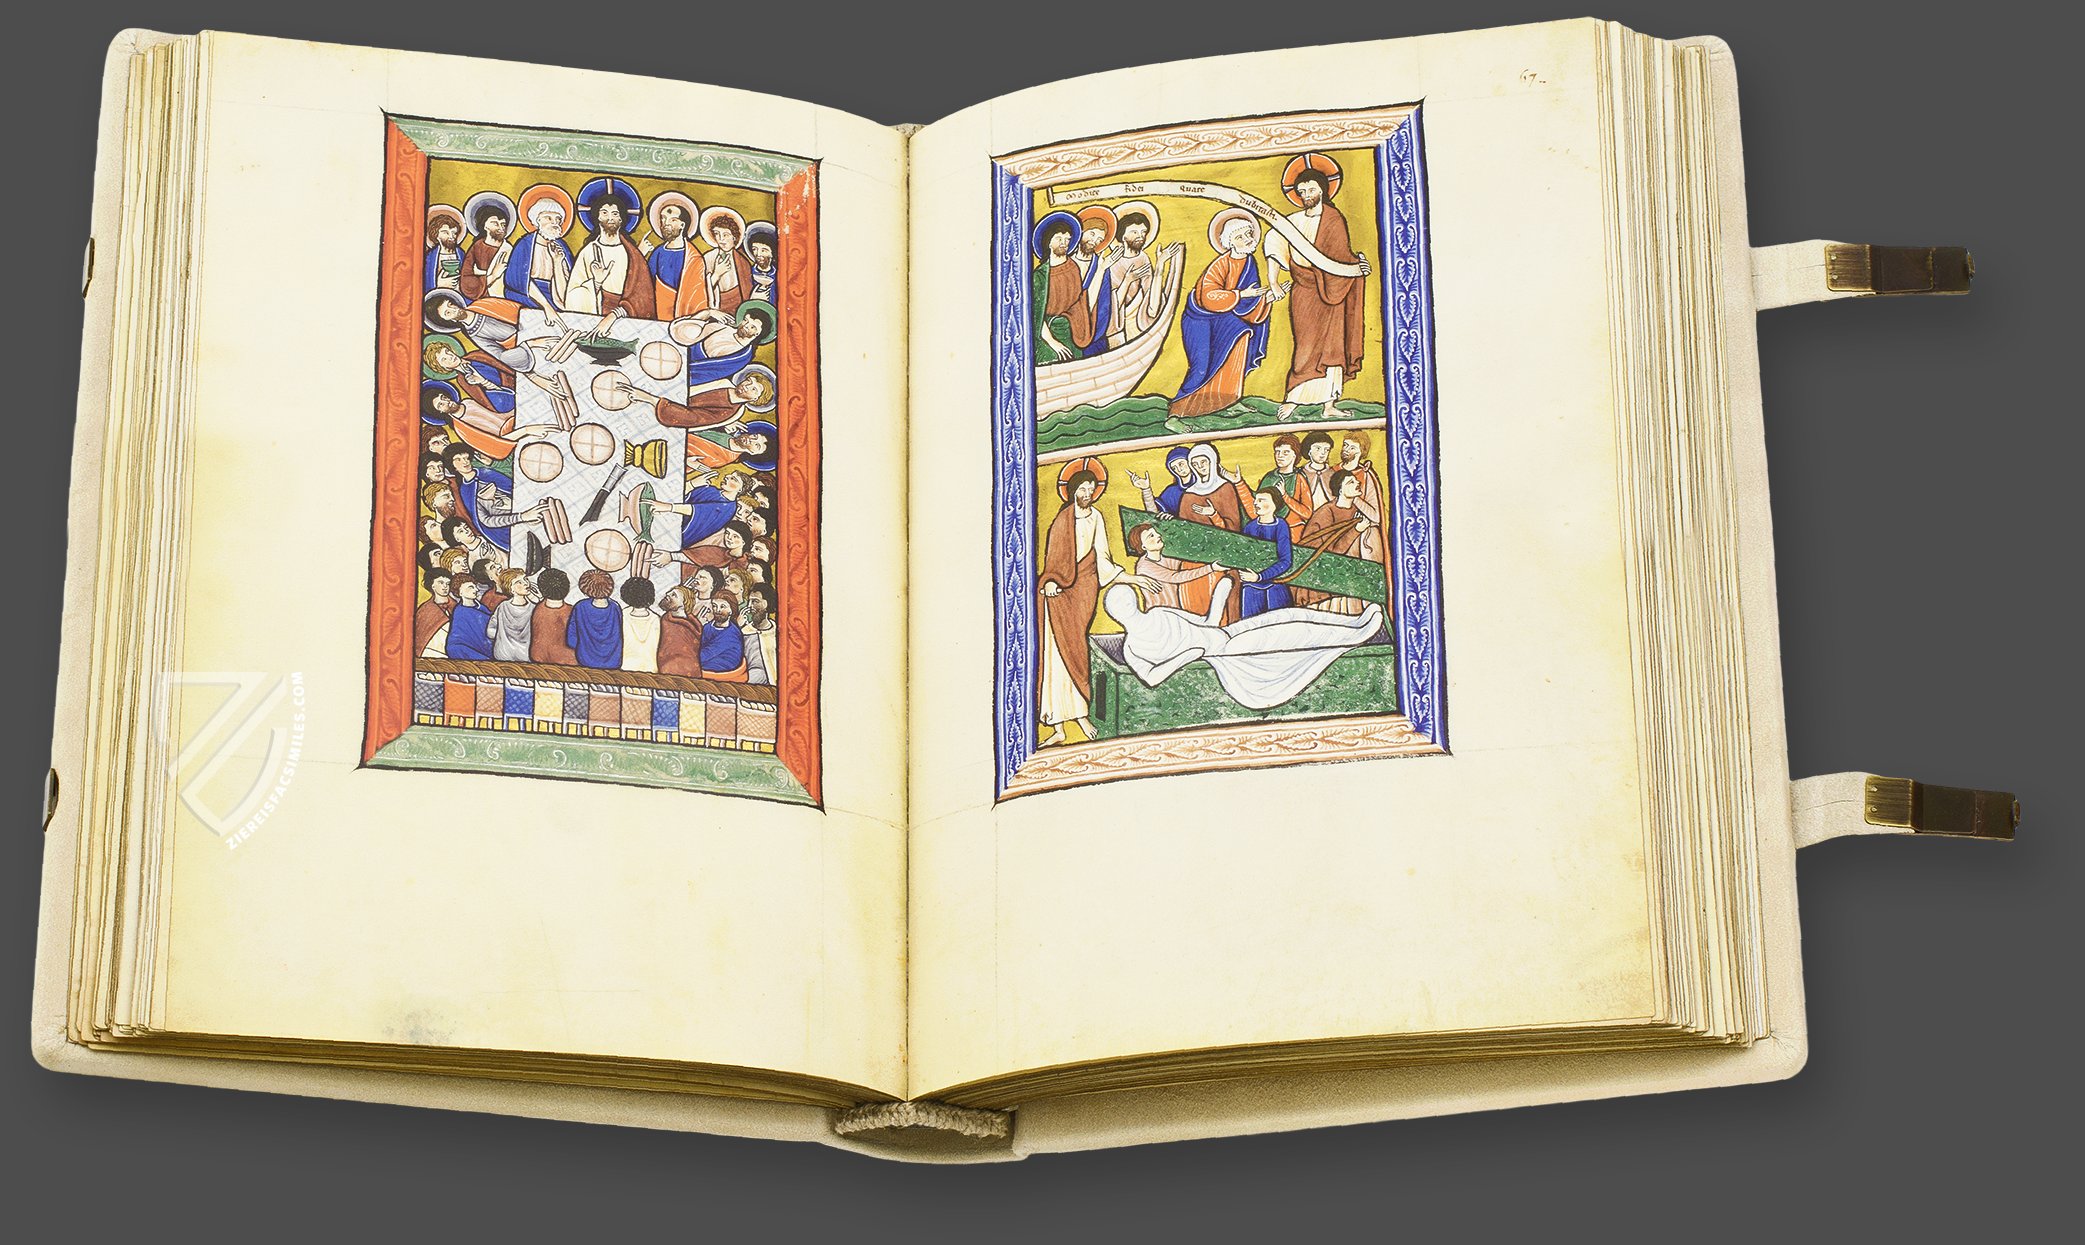 67-
Modice fidei quare
dubitasti.
ZIEREISFACSIMILES.COM